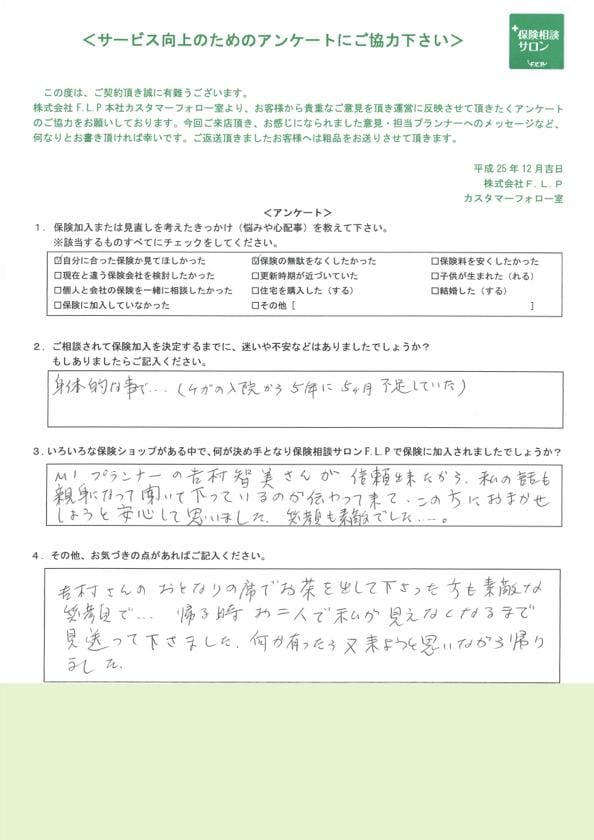 ＜サービス向上のためのアンケートにご協力下さい＞
+保険相談
サロン
F.L.P
この度は、ご契約頂き誠に有難うございます。
株式会社Ｆ.Ｌ.Ｐ本社カスタマーフォロー室より、お客様から貴重なご意見を頂き運営に反映させて頂きたくアンケート
のご協力をお願いしております。今回ご来店頂き、お感じになられました意見・担当プランナーへのメッセージなど、
何なりとお書き頂ければ幸いです。ご返送頂きましたお客様へは粗品をお送りさせて頂きます。
平成25年12月吉日
株式会社Ｆ.Ｌ.Ｐ
カスタマーフォロー室
＜アンケート＞
１．保険加入または見直しを考えたきっかけ（悩みや心配事）を教えて下さい。
※該当するものすべてにチェックをしてください。
☑自分に合った保険か見てほしかった ☑保険の無駄をなくしたかった □保険料を安くしたかった
□現在と違う保険会社を検討したかった □更新時期が近づいていた □子供が生まれた（れる）
□個人と会社の保険を一緒に相談したかった □住宅を購入した（する） □結婚した（する）
□保険に加入していなかった □その他［ ］
２．ご相談されて保険加入を決定するまでに、迷いや不安などはありましたでしょうか？
もしありましたらご記入ください。
身体的な事で‥‥(ケガの入院から5年に5ヶ月不足していた)
３.いろいろな保険ショップがある中で、何が決め手となり保険相談サロンF.L.Pで保険に加入されましたでしょうか？
プランナーの吉村智美さんが信頼出来たから、私の話も
親身になって聞いて下っているのが伝わって来て、この方におまかせ
しようと安心して思いました。笑顔も素敵でした‥‥。
４．その他、お気づきの点があればご記入ください。
吉村さんのおとなりの席でお茶を出して下さった方も素敵な
笑顔で‥‥帰る時お二人で私が見えなくなるまで
見送って下さました。何か有ったら又来ようと思いながら帰り
ました。